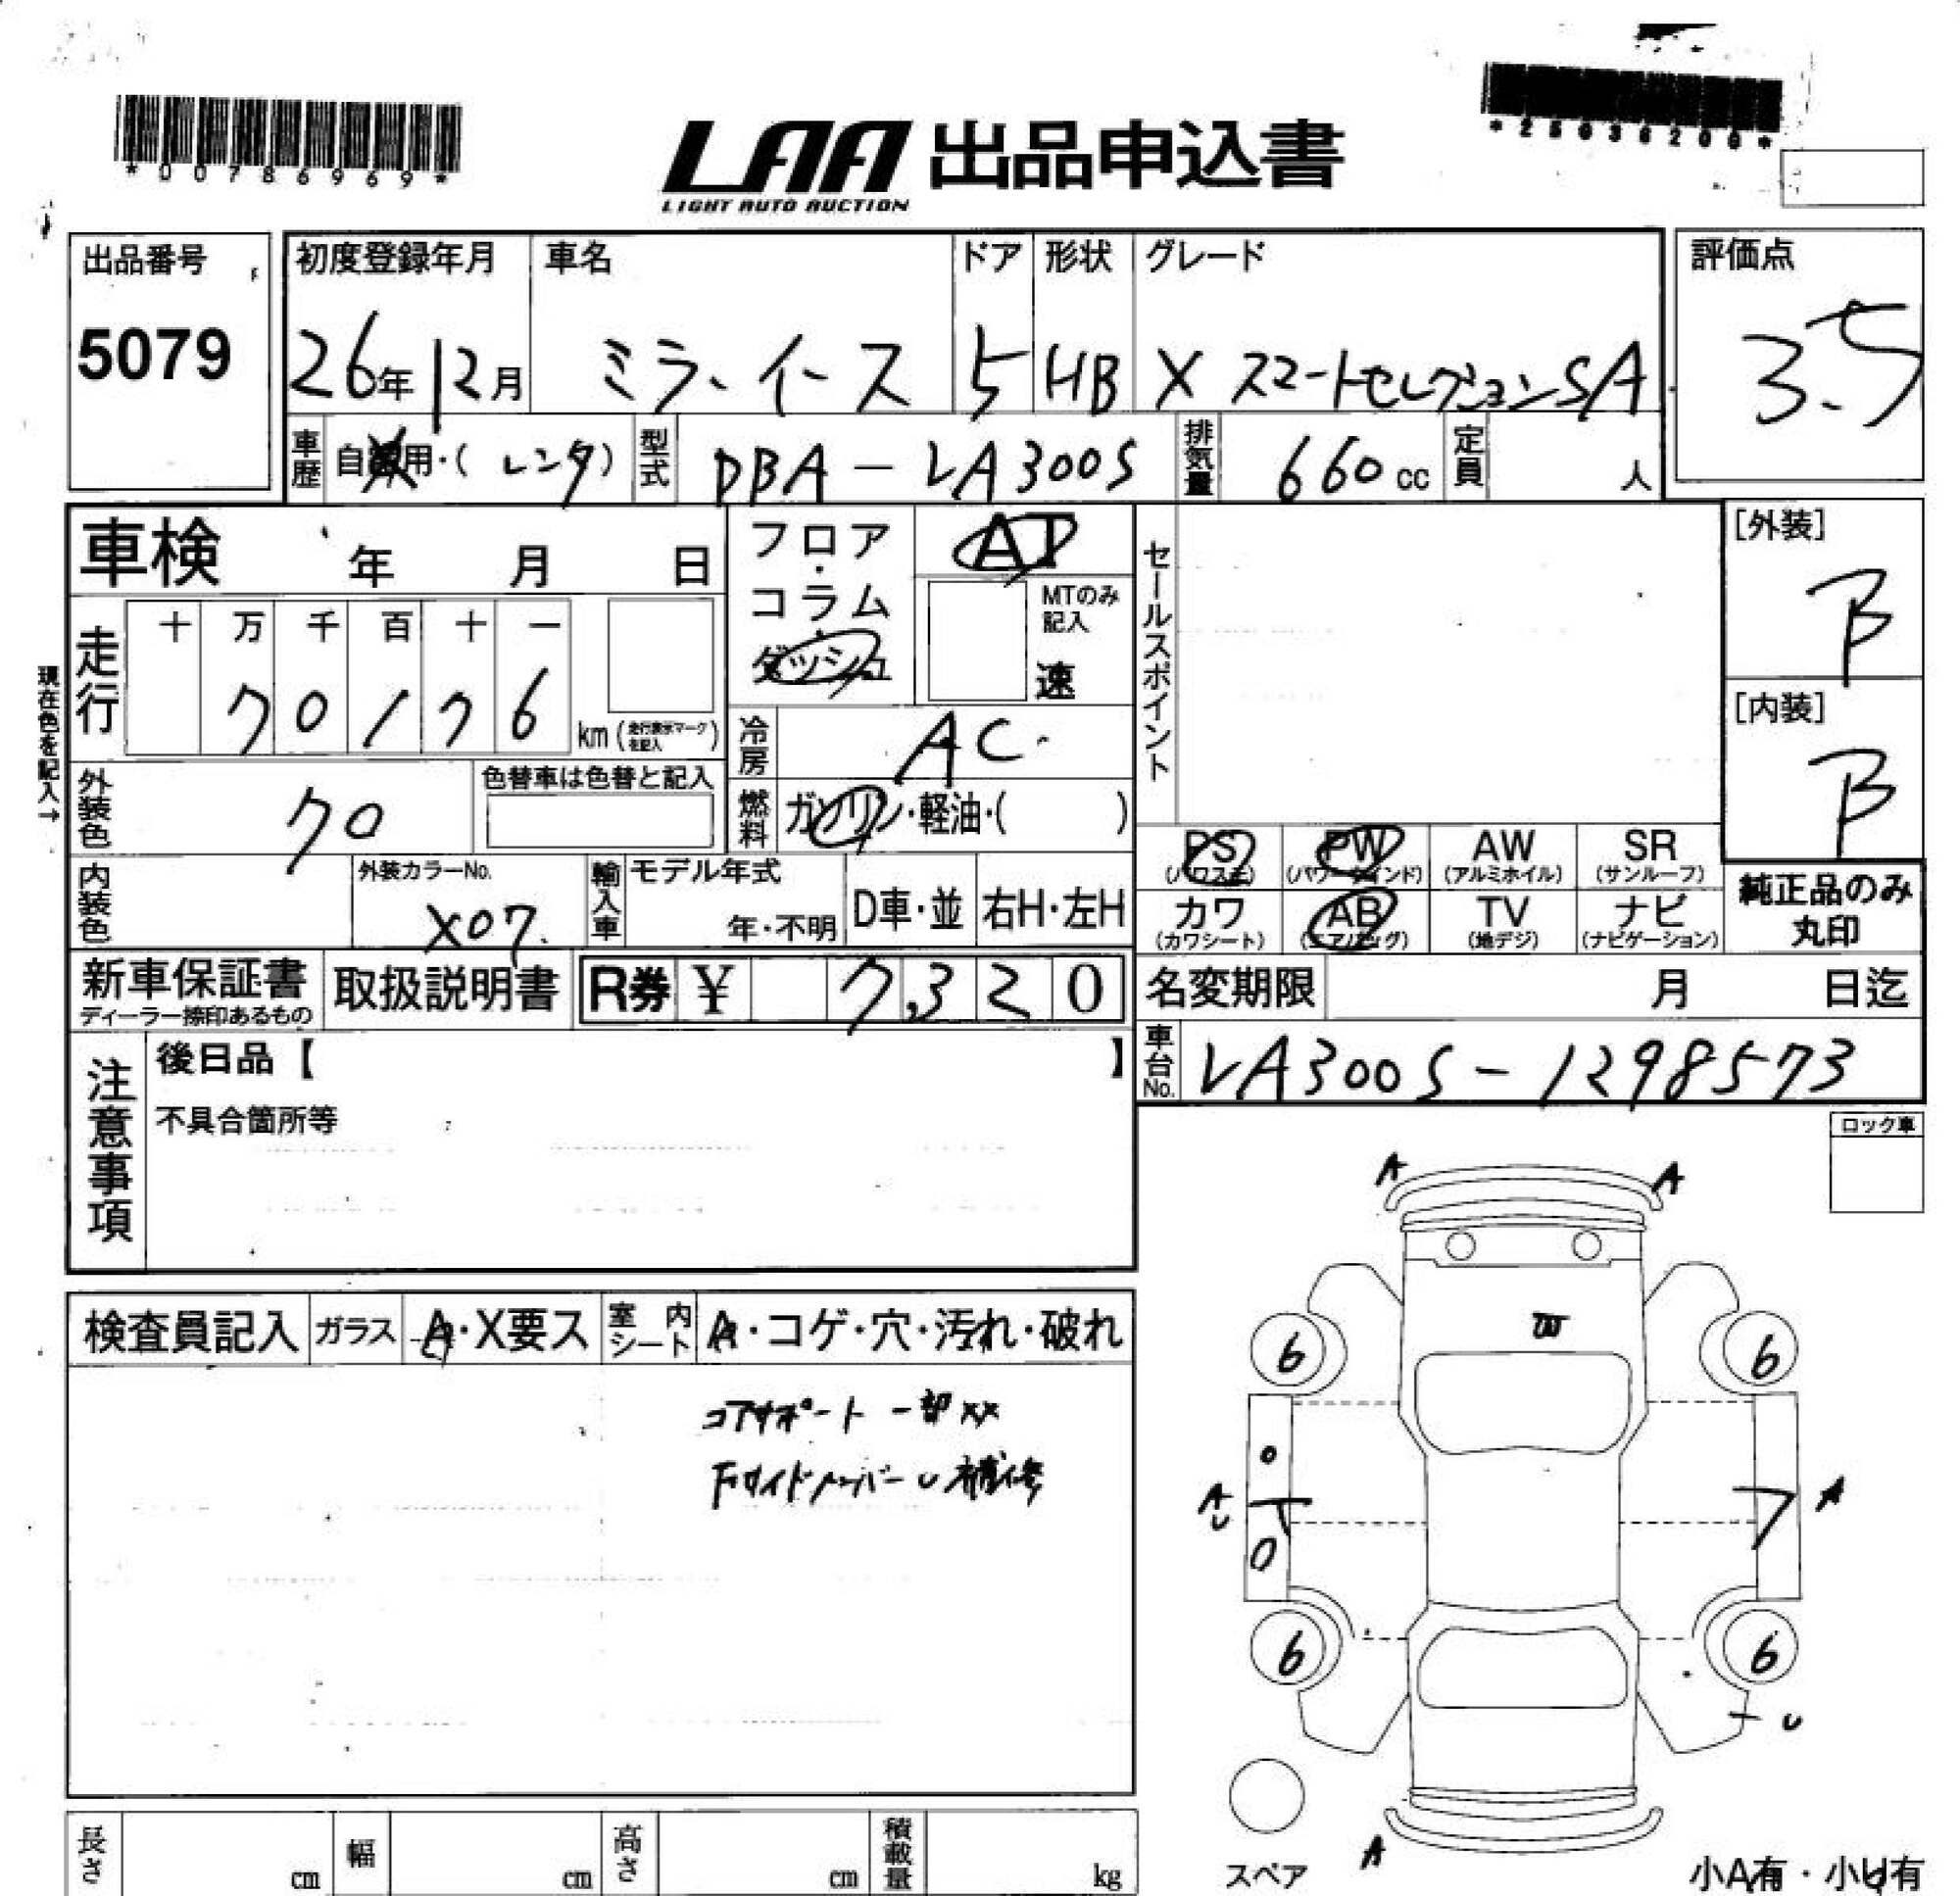 *00786969*
LAA 出品申込書
LIGHT AUTO AUCTION
*25036200*
出品番号 5079
初度登録年月 26年12月
車名 ミラ、イース
ドア 5
形状 HB
グレード X スマートセレクションSA
評価点 3.5
車歴 自 用・( レンタ )
型式 DBA-LA300S
排気量 660cc
定員 人
車検 年 月 日
フロア・コラム・ダッシュ
AT
MTのみ記入 速
セールスポイント
[外装] B
[内装] B
現在色を記入→
走行 十 万 千 百 十 一
7 0 1 7 6 km(走行表示マークを記入)
冷房 AC
燃料 ガソリン・軽油・( )
外装色 クロ
色替車は色替と記入
内装色
外装カラーNo. X07
輸入車 モデル年式 年・不明 D車・並 右H・左H
PS (パワステ) PW (パワーウインド) AW (アルミホイル) SR (サンルーフ)
カワ (カワシート) AB (エアバッグ) TV (地デジ) ナビ (ナビゲーション)
純正品のみ丸印
新車保証書 ディーラー捺印あるもの
取扱説明書
R券 ¥ 7,320
名変期限 月 日迄
車台No. LA300S-1298573
注意事項
後日品【 】
不具合箇所等
ロック車
検査員記入 ガラス A・X要ス 室内シート A・コゲ・穴・汚れ・破れ
コアサポート 一部XX
Fサイドメンバー U 補修
A A
W
6 6
A U A
6 6
U
A
スペア
小A有・小U有
長さ cm 幅 cm 高さ cm 積載量 kg